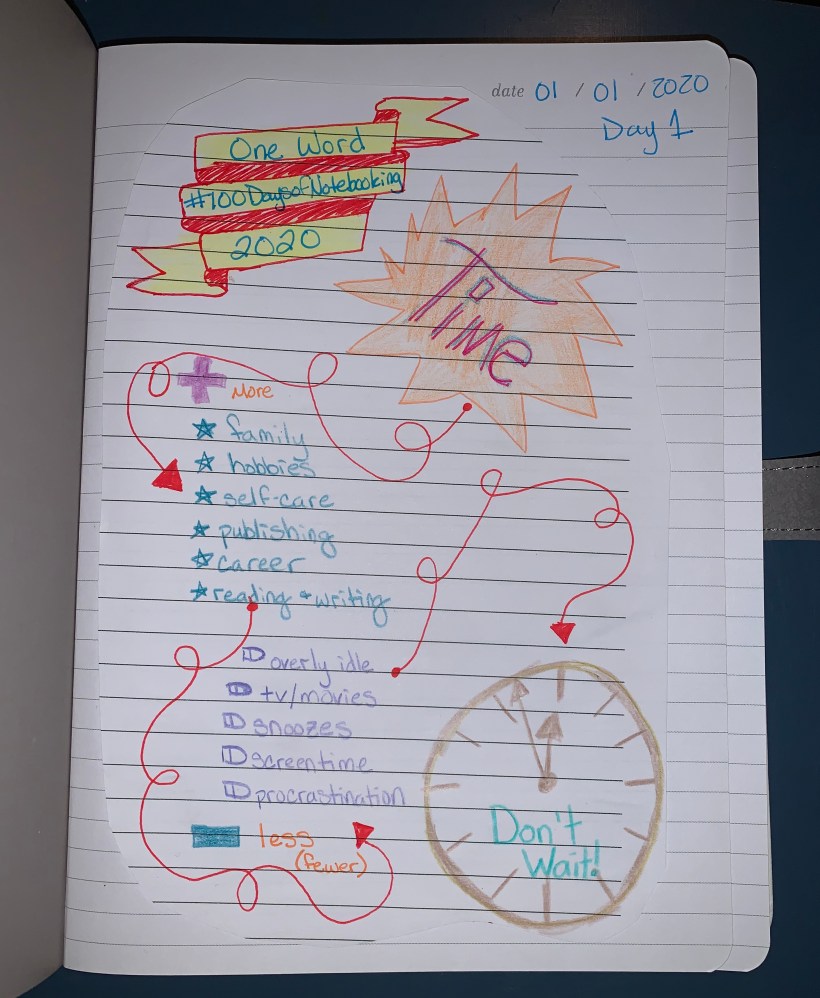 date 01 / 01 / 2020
Day 1
One Word
#100DaysofNotebooking
2020
TIME
More
family
hobbies
self-care
publishing
career
reading + writing
overly idle
tv/movies
snoozes
screentime
procrastination
less
(fewer)
Don't
Wait!